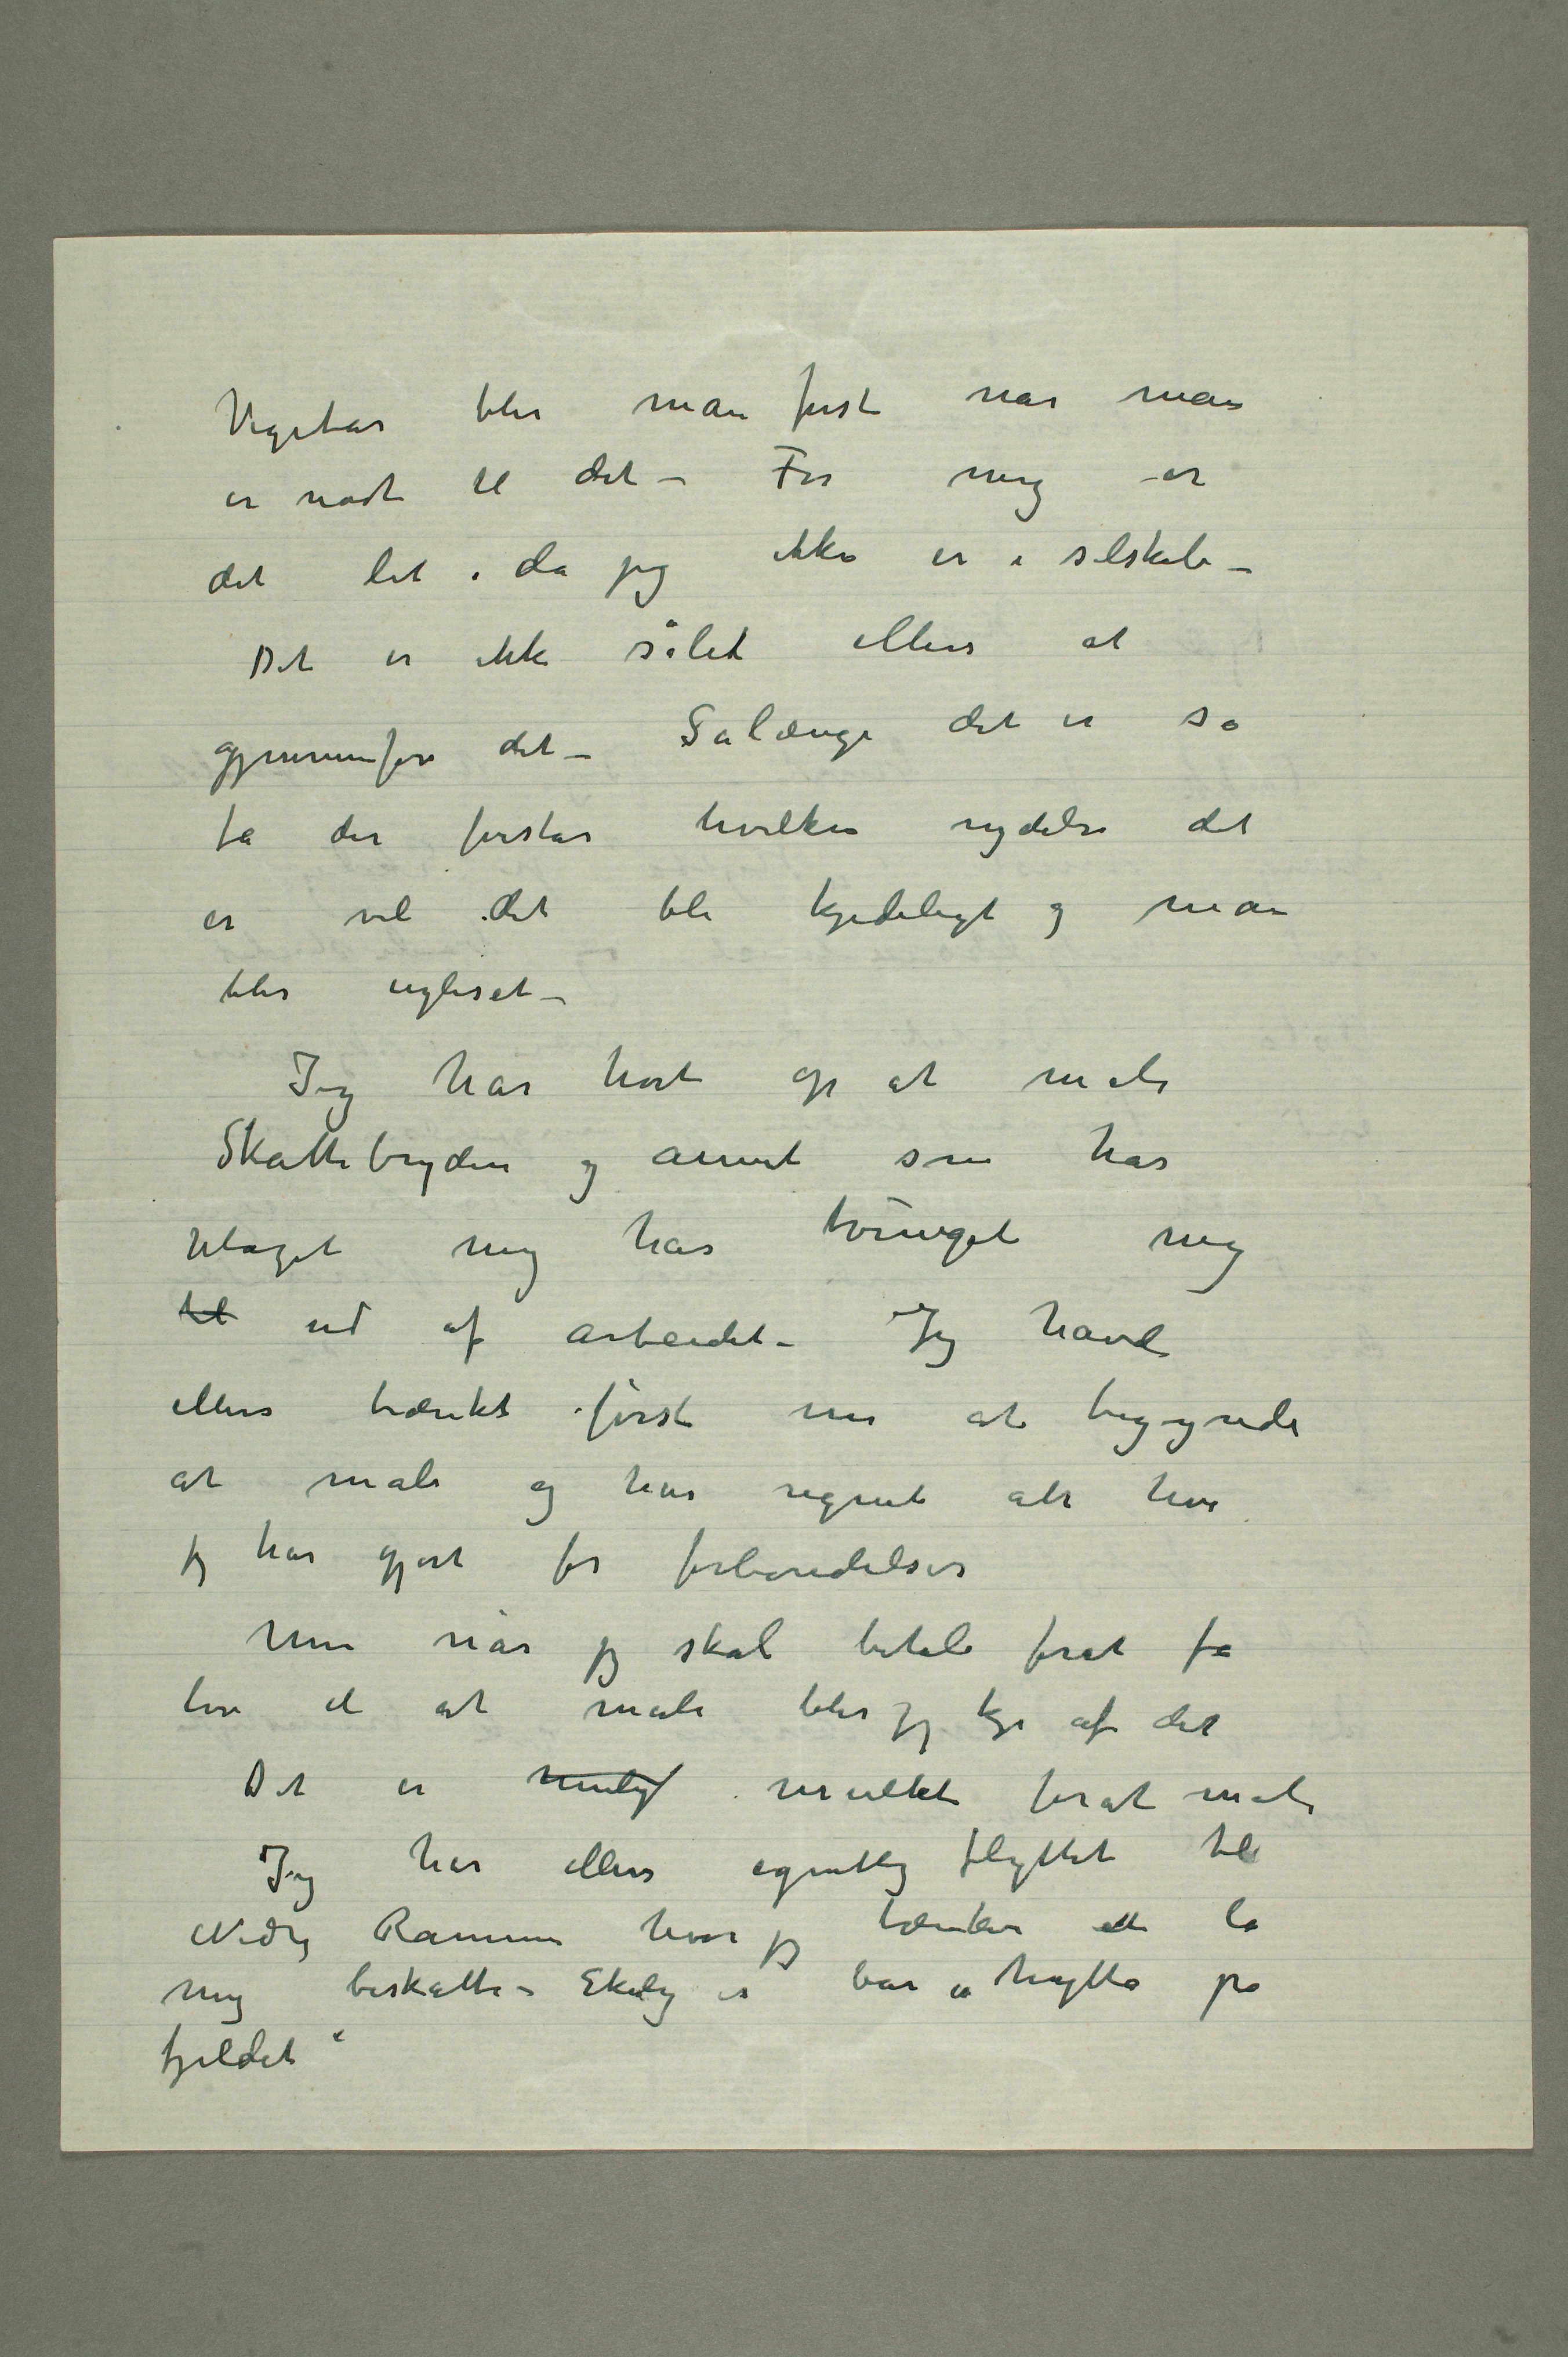 Vegetar blir man først når man
er nødt til det – For mig er
det let i da jeg ikke er i selskab –
Det er ikke sålet ellers at
gjennemføre det – Sålænge det er så
få der forstår hvilken nydelse det
er vil det bli kjedeligt og man
blir ugleset –
Jeg har hørt op at male
Skattebryderi og annet som har
plaget mig har tvunget mig
til ud af arbeidet – Jeg havde
ellers tænkt først nu at begynde
at male og har regnet alt hva
jeg har gjort for forberedelser
Men når jeg skal betale forat få
lov til at male blir jeg kje af det
Det er umulkt forat male
Jeg har ellers egentlig flyttet til
Nedre Ramme hvor jeg tænker at la
mig beskatte – Ekely er bare en hytte på
fjeldet